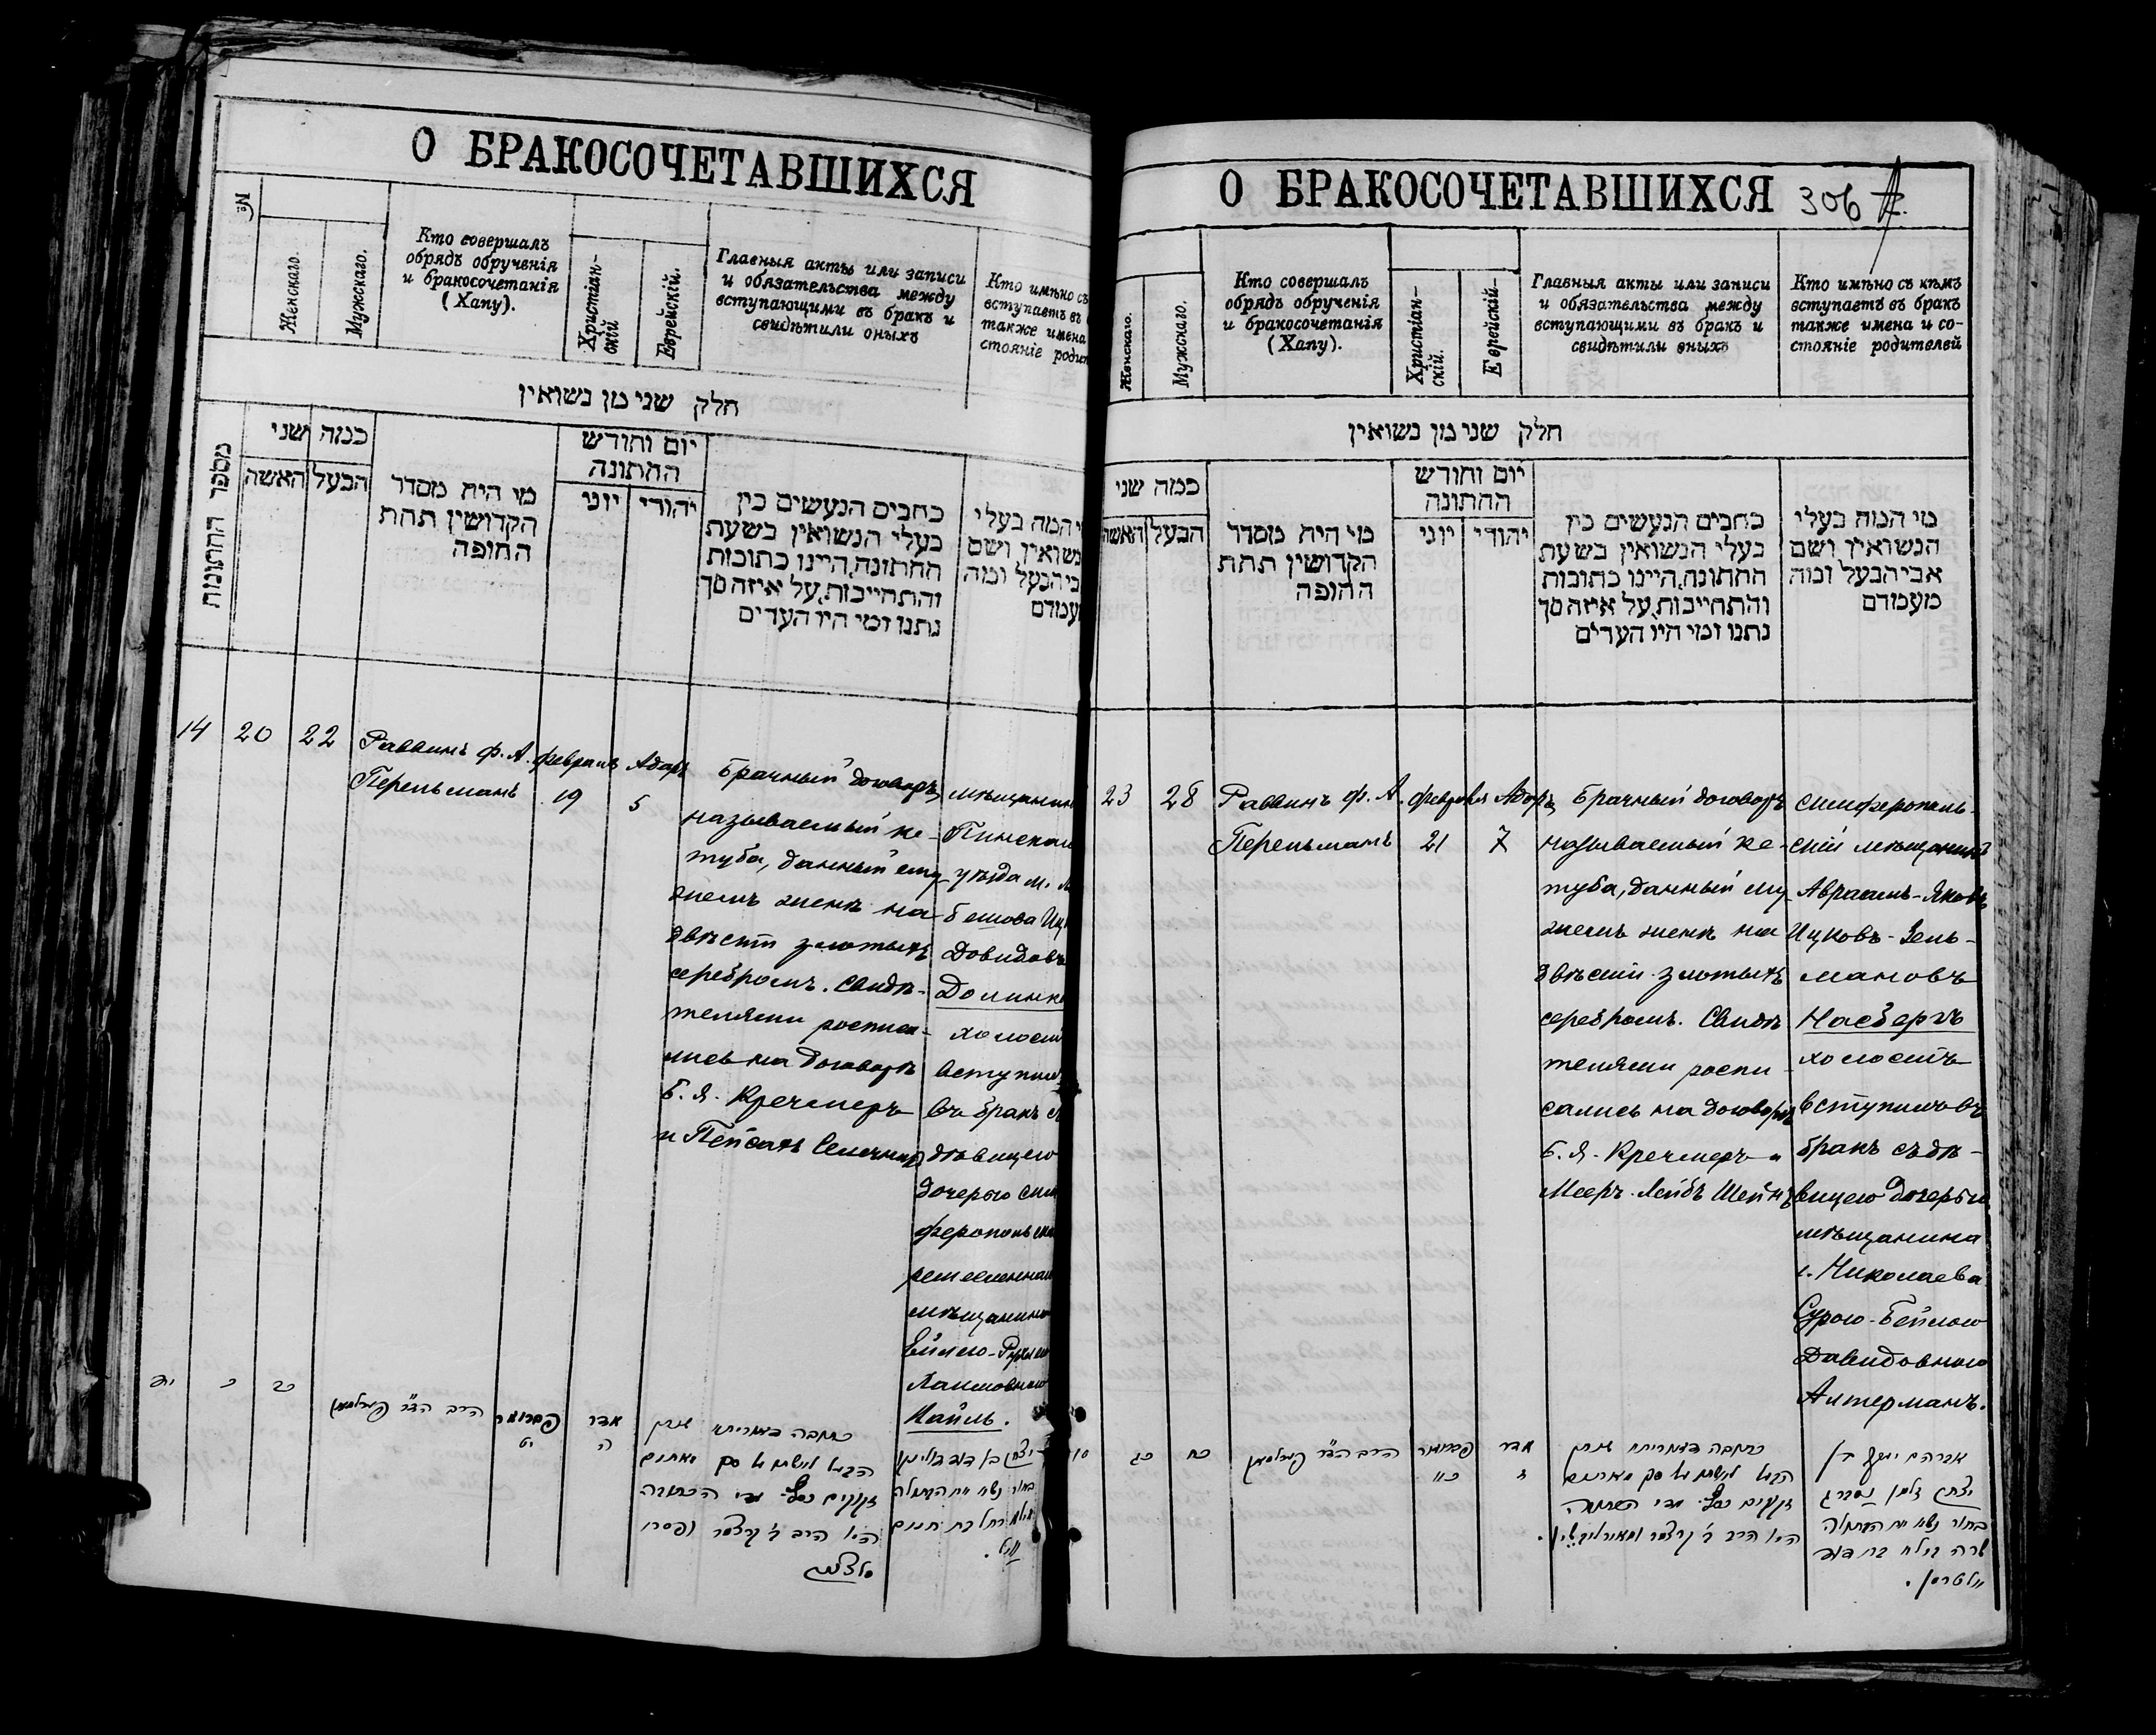 О БРАКОСОЧЕТАВШИХСЯ
№
Женскаго.
Мужскаго.
Кто совершалъ
обрядъ обрученія
и бракосочетанія
(Хапу).
Христіан-
скій
Еврейскій.
Главныя акты или записи
и обязательства между
вступающими въ бракъ и
свидѣтили оныхъ
Кто имѣно съ
вступаетъ въ
также имена
стояніе родит
חלק שני מן נשואין
מספר החתונות
כמה שני
האשה
הבעל
מי היה מסדר
הקדושין תחת
החופה
יום וחודש
החתונה
יוני
יהודי
כתבים הנעשים בין
בעלי הנשואין בשעת
החתונה, היינו כתובות
והתחייבות, על איזה סך
נתנו ומי היו העדים
י המה בעלי
נשואין ושם
בי הבעל ומה
עמדם
14
20
22
Раввинъ Ф. А.
Перельманъ
февраль
19
Адаръ
5
Брачный договоръ,
называемый ке-
туба, данный му-
жемъ женѣ на
двѣсти злотыхъ
серебромъ. Свидѣ-
телями росписа-
лись на договорѣ
Б. Я. Кречмеръ
и Пейсахъ
мѣщанинъ
Пинскаго
уѣзда м. Л
бешова Иц
Довидовъ
Долинко
холостъ
вступилъ
въ бракъ съ
дѣвицею
дочерью сим
феропольска
ремесленнаго
мѣщанина
Хаимовною
Кайль.
כ
כב
הרב הד״ר פערלמאן
פברואר
יט
אדר
ה
כתובה
הבעל לאשתו על סך מאתים
זקוקים כסף. עדי הכתובה
היו הרב י׳ קרצמר ופסח
בחור נשא את הבתולה
רחל בת חיים
О БРАКОСОЧЕТАВШИХСЯ
306
Женскаго.
Мужскаго.
Кто совершалъ
обрядъ обрученія
и бракосочетанія
(Хапу).
Христіан-
скій.
Еврейскій-
Главныя акты или записи
и обязательства между
вступающими въ бракъ и
свидѣтили оныхъ
Кто имѣно съ кѣмъ
вступаетъ въ бракъ
также имена и со-
стояніе родителей
חלק שני מן נשואין
כמה שני
האשה
הבעל
מי היה מסדר
הקדושין תחת
החופה
יום וחודש
החתונה
יוני
יהודי
כתבים הנעשים בין
בעלי הנשואין בשעת
החתונה, היינו כתובות
והתחייבות, על איזה סך
נתנו ומי היו העדים
מי המה בעלי
הנשואין ושם
אבי הבעל ומה
מעמדם
23
28
Раввинъ Ф. А.
Перельманъ
февраля
21
Адаръ
7
Брачный договоръ
называемый ке-
туба, данный му-
жемъ женѣ на
двѣсти злотыхъ
серебромъ. Свидѣ
телями роспи-
сались на договорѣ
Б. Я. Кречмеръ и
Мееръ-Лейбъ Шейнъ
симферополь-
скій мѣщанинъ
Авраамъ-Яковъ
Ицковъ-Зель-
мановъ
Насбергъ
холостъ
вступилъ въ
бракъ съ дѣ-
вицею дочерью
мѣщанина
г. Николаева
Сурою-Бейлою
Давидовною
Алтерманъ.
כג
כח
הרב הד״ר פערלמאן
פברואר
כ״א
אדר
ז
כתובה
הבעל לאשתו על סך מאתים
זקוקים כסף. עדי הכתובה
היו הרב י׳ קרצמר ומאיר ליב שיין.
אברהם יעקב בן
יצחק זלמן נסברג
בחור נשא את הבתולה
שרה ביילא בת דוד
אלטרמן.